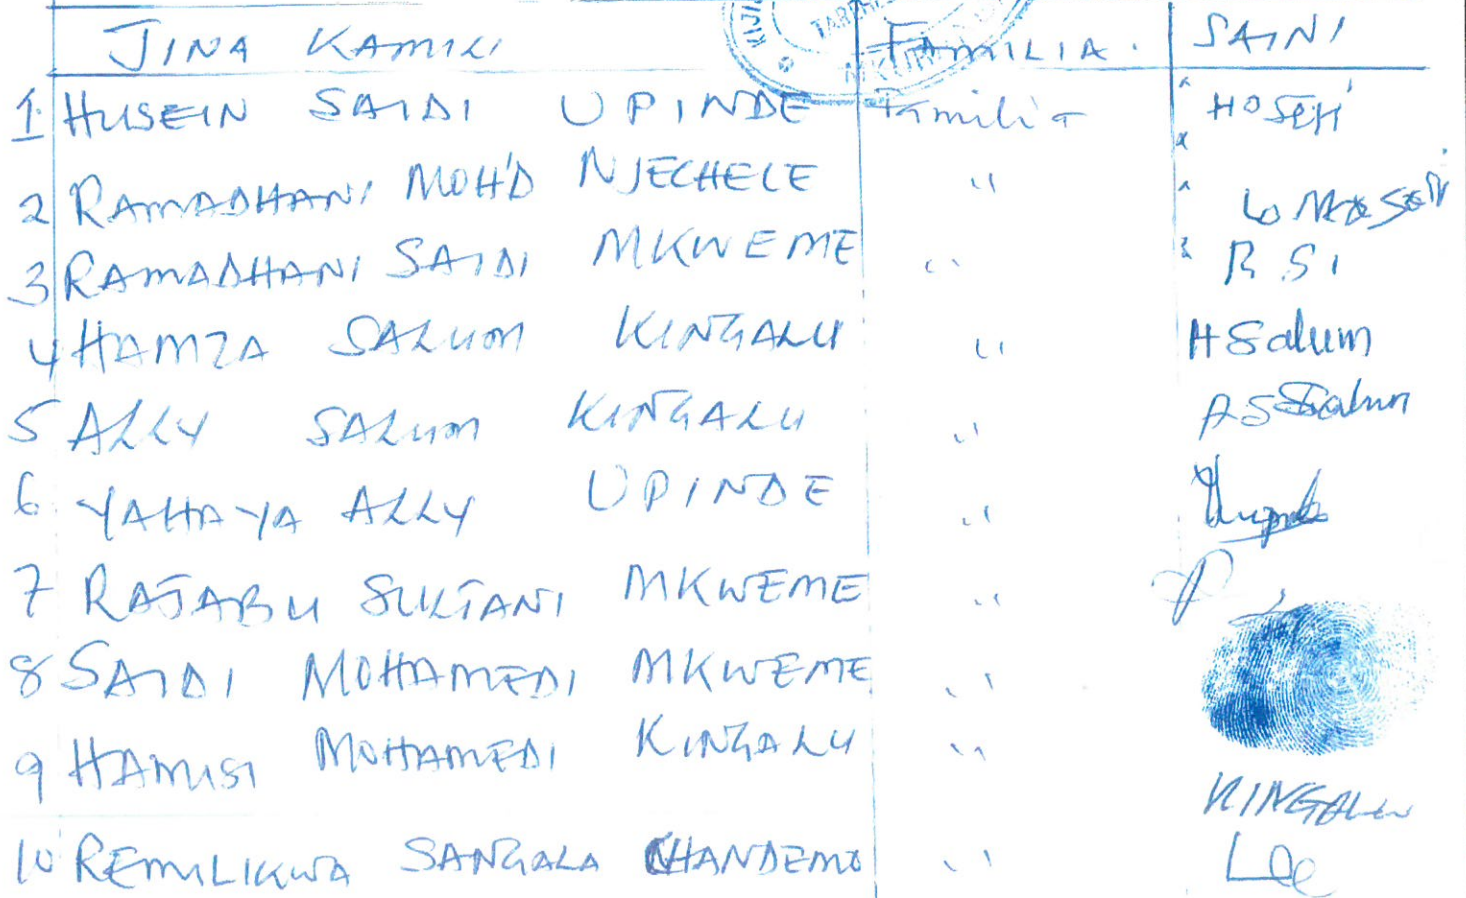 JINA KAMILI FAMILIA. SAINI
1. HUSEIN SAIDI UPINDE Familia HOSENI
2 RAMADHANI MOH'D NJECHELE "
3 RAMADHANI SAIDI MKWEME " R SI
4 HAMZA SALUM KINGALU " H Salum
5 ALLY SALUM KINGALU " A S Salum
6 YAHAYA ALLY UPINDE "
7 RAJABU SULTANI MKWEME "
8 SAIDI MOHAMEDI MKWEME "
9 HAMISI MOHAMEDI KINGALU " KINGALU
10 REMILIKWA SANGALA CHANDEMO "